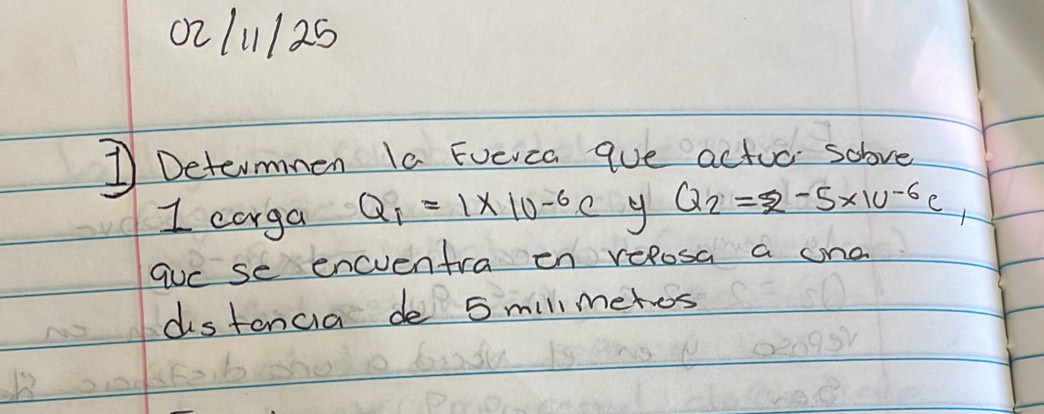 02/11/25
1) Determnen la Fuerza que actua sobre
1 carga Q1 = 1x10-6c y Q2 = -5x10-6c,
que se encuentra en reposa a una
distancia de 5 milimetros